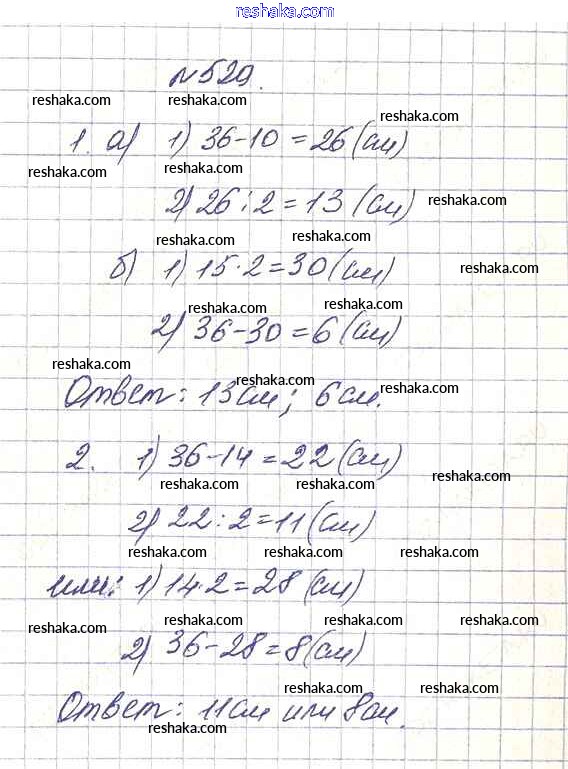 reshaka.com
№529.
reshaka.com reshaka.com
reshaka.com
1. а) 1) 36-10=26(см)
reshaka.com reshaka.com
2) 26:2=13(см) reshaka.com
reshaka.com reshaka.com
б) 1) 15·2=30(см) reshaka.com
reshaka.com reshaka.com
2) 36-30=6(см)
reshaka.com reshaka.com
Ответ: 13см; 6см. reshaka.com
reshaka.com
2. 1) 36-14=22(см)
reshaka.com reshaka.com
2) 22:2=11(см)
reshaka.com reshaka.com reshaka.com
или: 1) 14·2=28(см)
reshaka.com reshaka.com reshaka.com
2) 36-28=8(см)
reshaka.com reshaka.com
Ответ: 11см или 8см.
reshaka.com